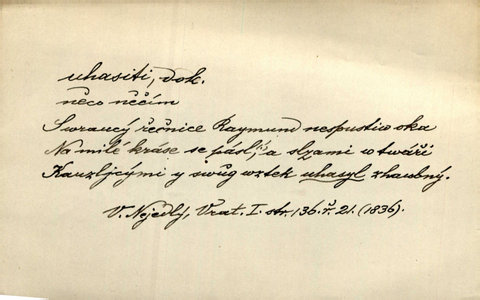 uhasiti, dok.
něco něčím
Swraucý řečnice Raymund nespustiw oka
Na milé kráse se pásl, a slzami w twáři
Kauzljcými y swůg wztek uhasyl zhaubný.
V. Nejedlý, Vrat. I. str. 136. ř. 21. (1836).